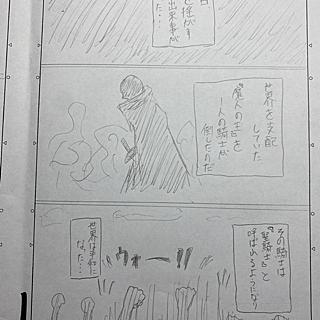 を揺がす
出来事が
た・・・
世界を支配
していた
魔人の王を
一人の騎士が
倒したのだ
その騎士は
『聖騎士』と
呼ばれるようになり
世界は平和に
なった・・・
ウォーリ